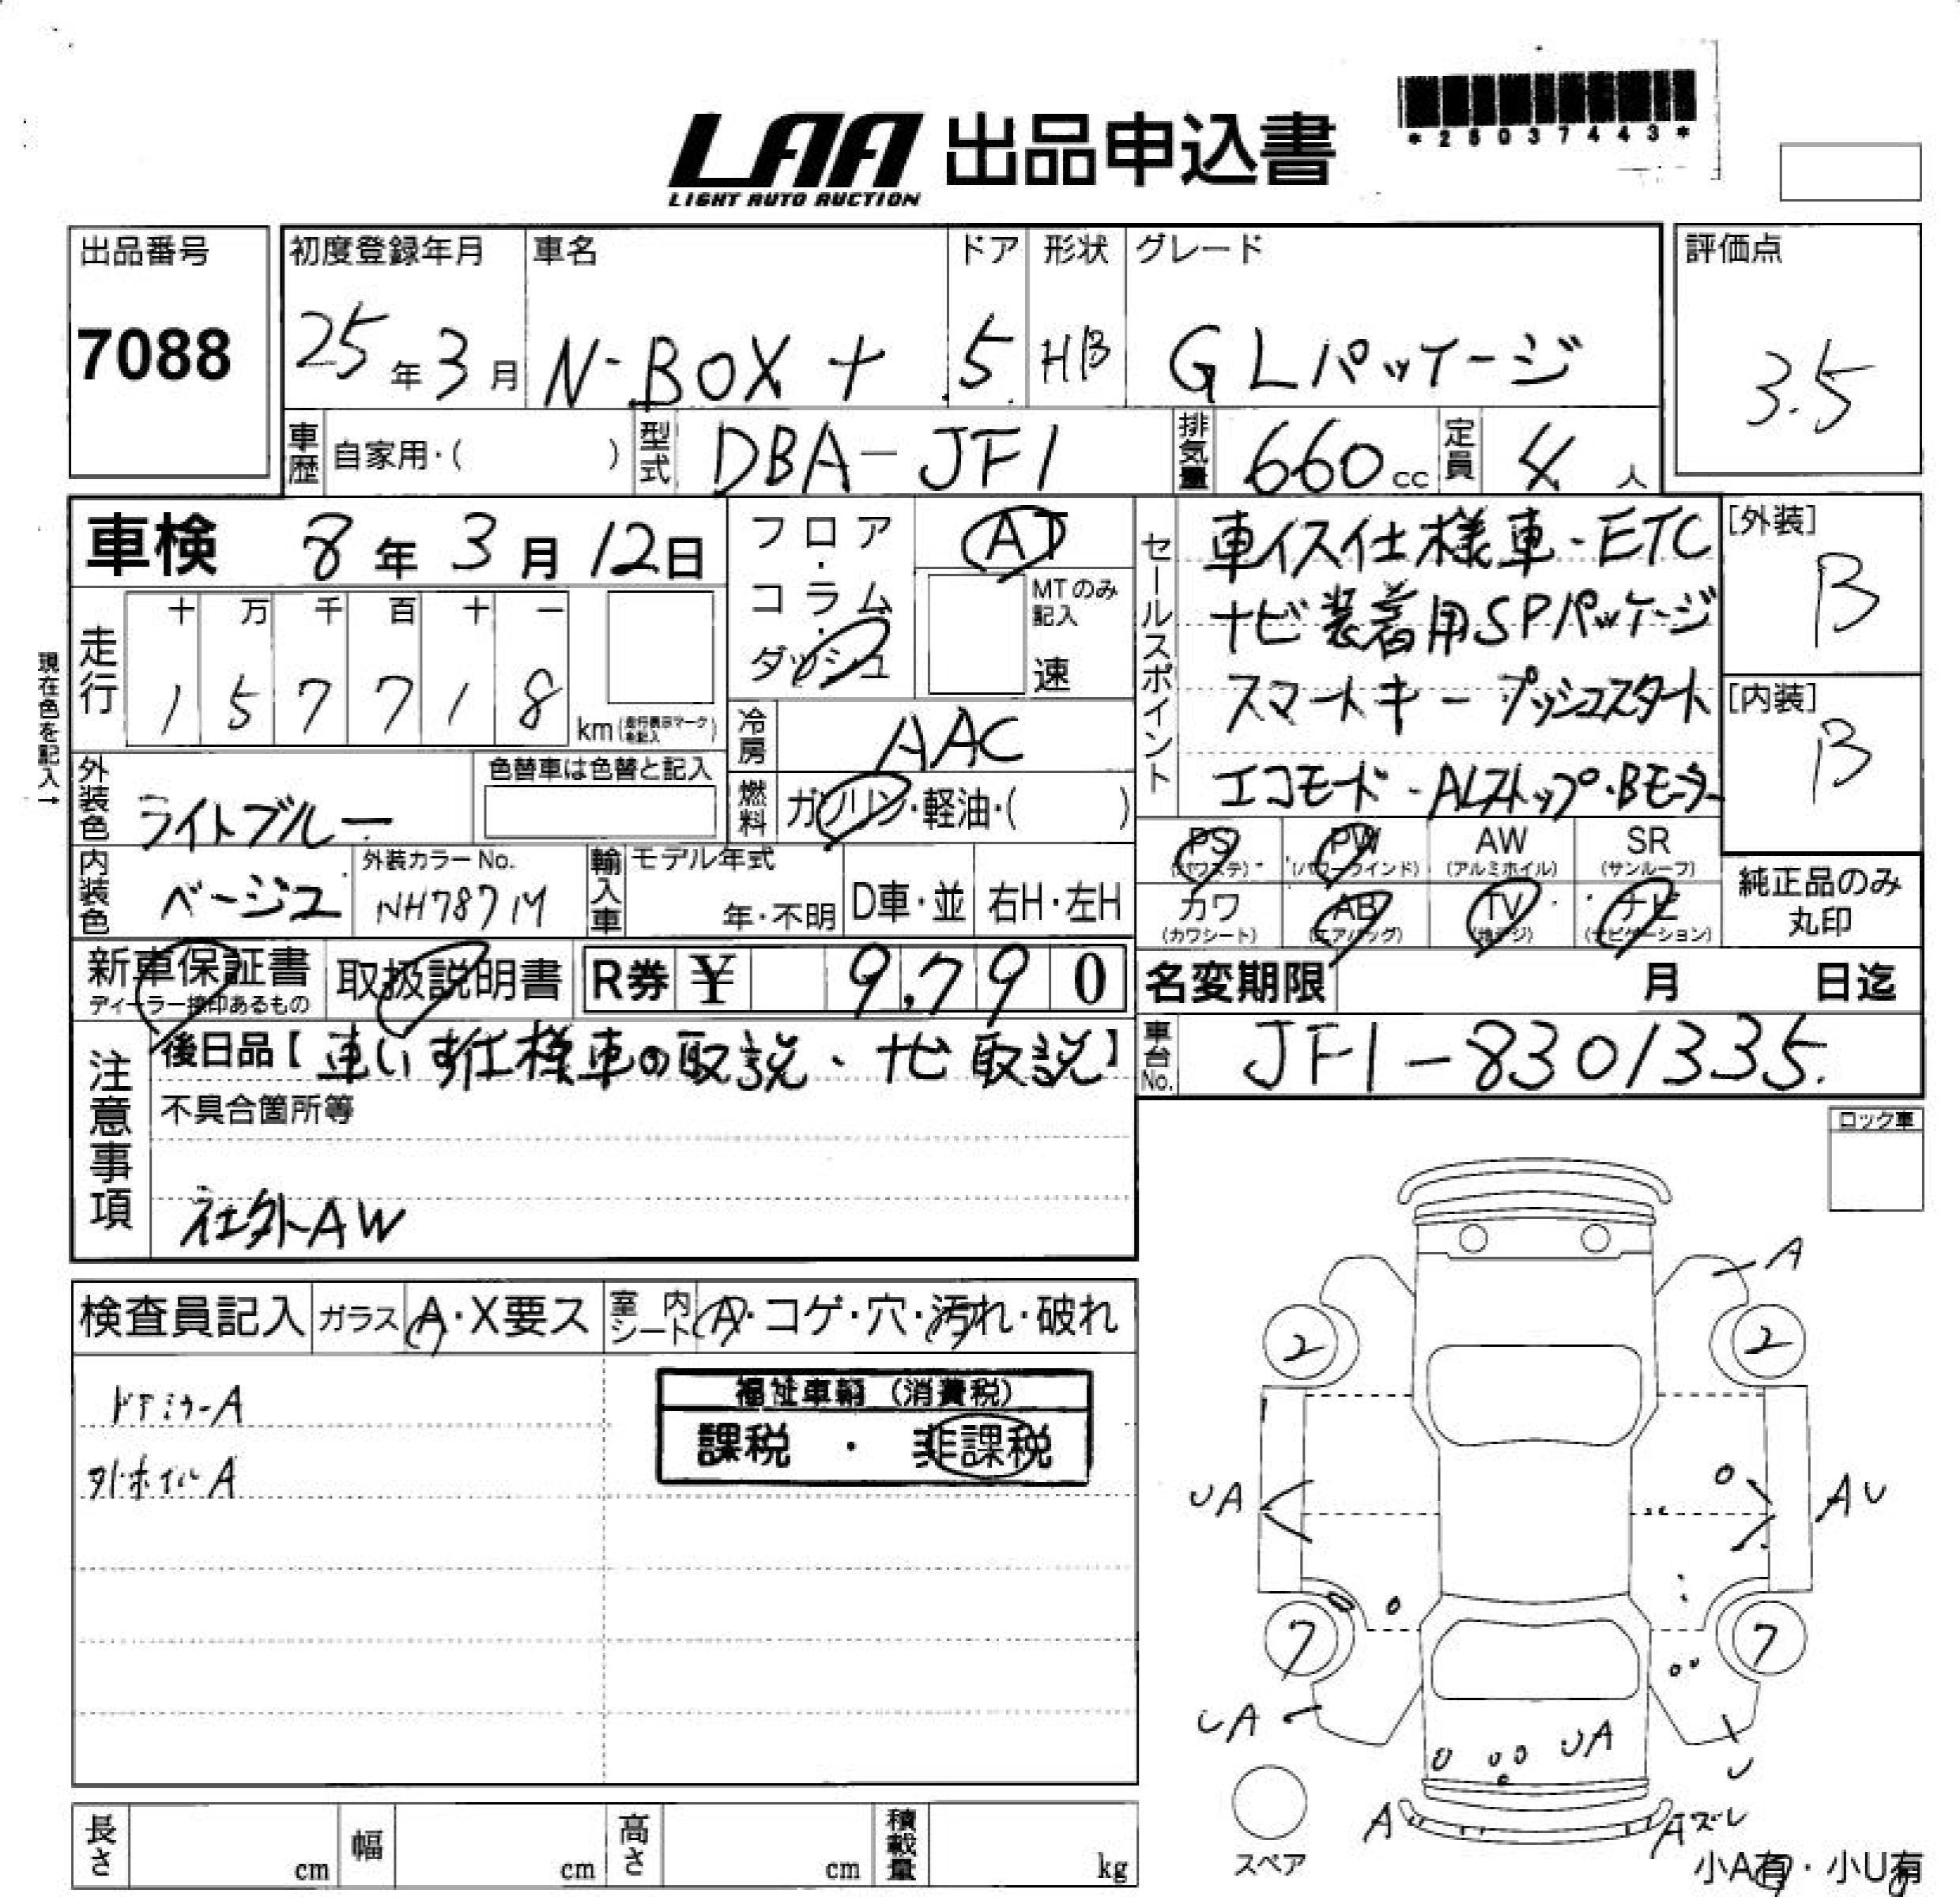 *26037443*
LAA 出品申込書
LIGHT AUTO AUCTION
出品番号 初度登録年月 車名 ドア 形状 グレード 評価点
7088 25年3月 N-BOX + 5 HB GLパッケージ 3.5
車歴 自家用・( ) 型式 DBA-JF1 排気量 660cc 定員 4人
車検 8年3月12日
フロア・コラム・ダッシュ AT
MTのみ記入
速
セールスポイント
車イス仕様車・ETC
ナビ装着用SPパッケージ
スマートキー プッシュスタート
エコモード・ALストップ・Bモニター
[外装]
B
[内装]
B
現在色を記入→
走行 十 万 千 百 十 一
1 5 7 7 1 8 km(走行表示マークを記入)
冷房 AAC
外装色 ライトブルー 色替車は色替と記入
燃料 ガソリン・軽油・( )
内装色 ベージュ 外装カラーNo. NH787M 輸入車 モデル年式 年・不明 D車・並 右H・左H
PS PW AW SR
(パワステ) (パワーウインド) (アルミホイル) (サンルーフ)
カワ AB TV ナビ
(カワシート) (エアバッグ) (地デジ) (ナビゲーション)
純正品のみ
丸印
新車保証書 取扱説明書 R券 ¥ 9,790
ディーラー捺印あるもの
名変期限 月 日迄
車台No. JF1-8301335.
注意事項
後日品【車いす仕様車の取説、ナビ取説】
不具合箇所等
社外AW
ロック車
検査員記入 ガラス A・X要ス 室内シート A・コゲ・穴・汚れ・破れ
ドアミラーA
外ホイルA
福祉車輌(消費税)
課税・非課税
A
2 2
UA AU
7 7
UA U
UA
A Aズレ
スペア
小A有・小U有
長さ cm 幅 cm 高さ cm 積載量 kg